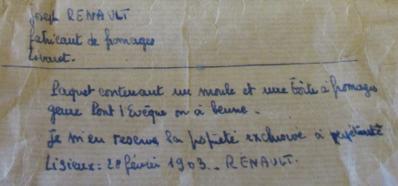 Joseph RENAULT
fabricant de fromages
Livarot.
Paquet contenant un moule et une boîte a fromages
genre Pont l'Evêque ou à beurre.
Je m'en reserve la propiété exclusive à perpétuité
Lisieux. 28 février 1903. RENAULT.